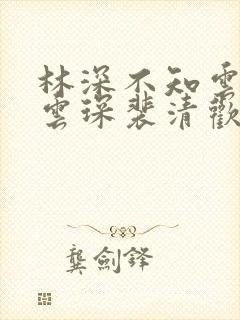 林深不知雲
雲琛裴清歡
龔劍鋒